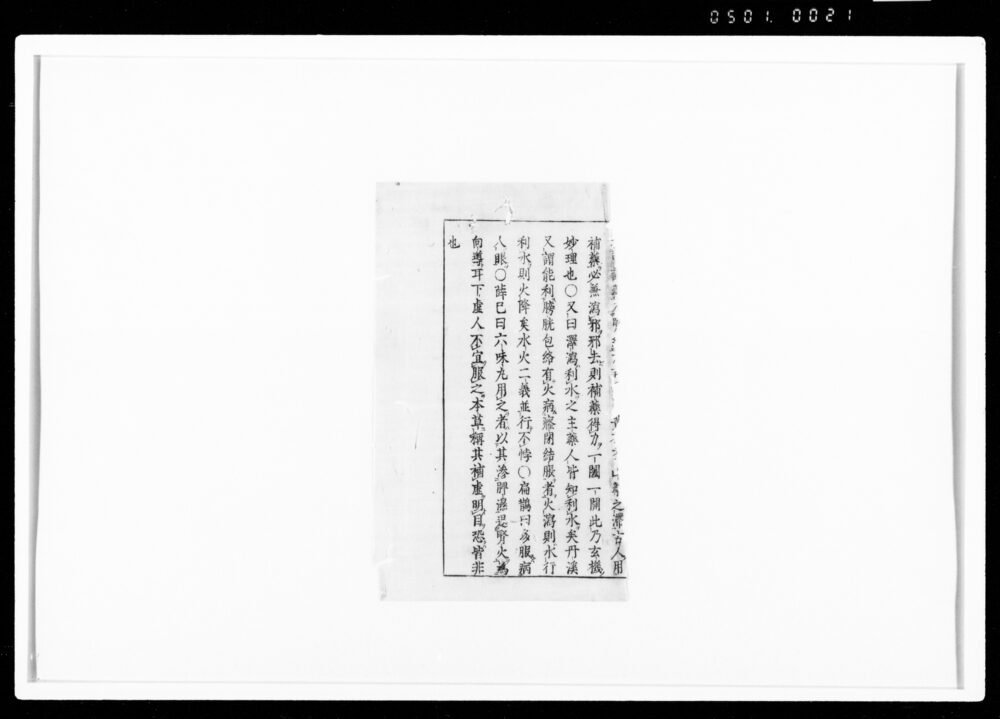 0501. 0021
之濕古人用
補藥必無瀉邪邪去則補藥得力一闔一開此乃玄機
妙理也〇又曰澤瀉利水之主藥人皆知利水矣丹溪
又謂能利膀胱包絡有火病癃閉結脹者火瀉則水行
利水則火降矣水火二義並行不悖〇扁鵲曰多服病
人眼〇薛己曰六味丸用之者以其滲脾濕恐腎火為
向導耳下虛人不宜服之本草稱其補虛明目恐皆非
也